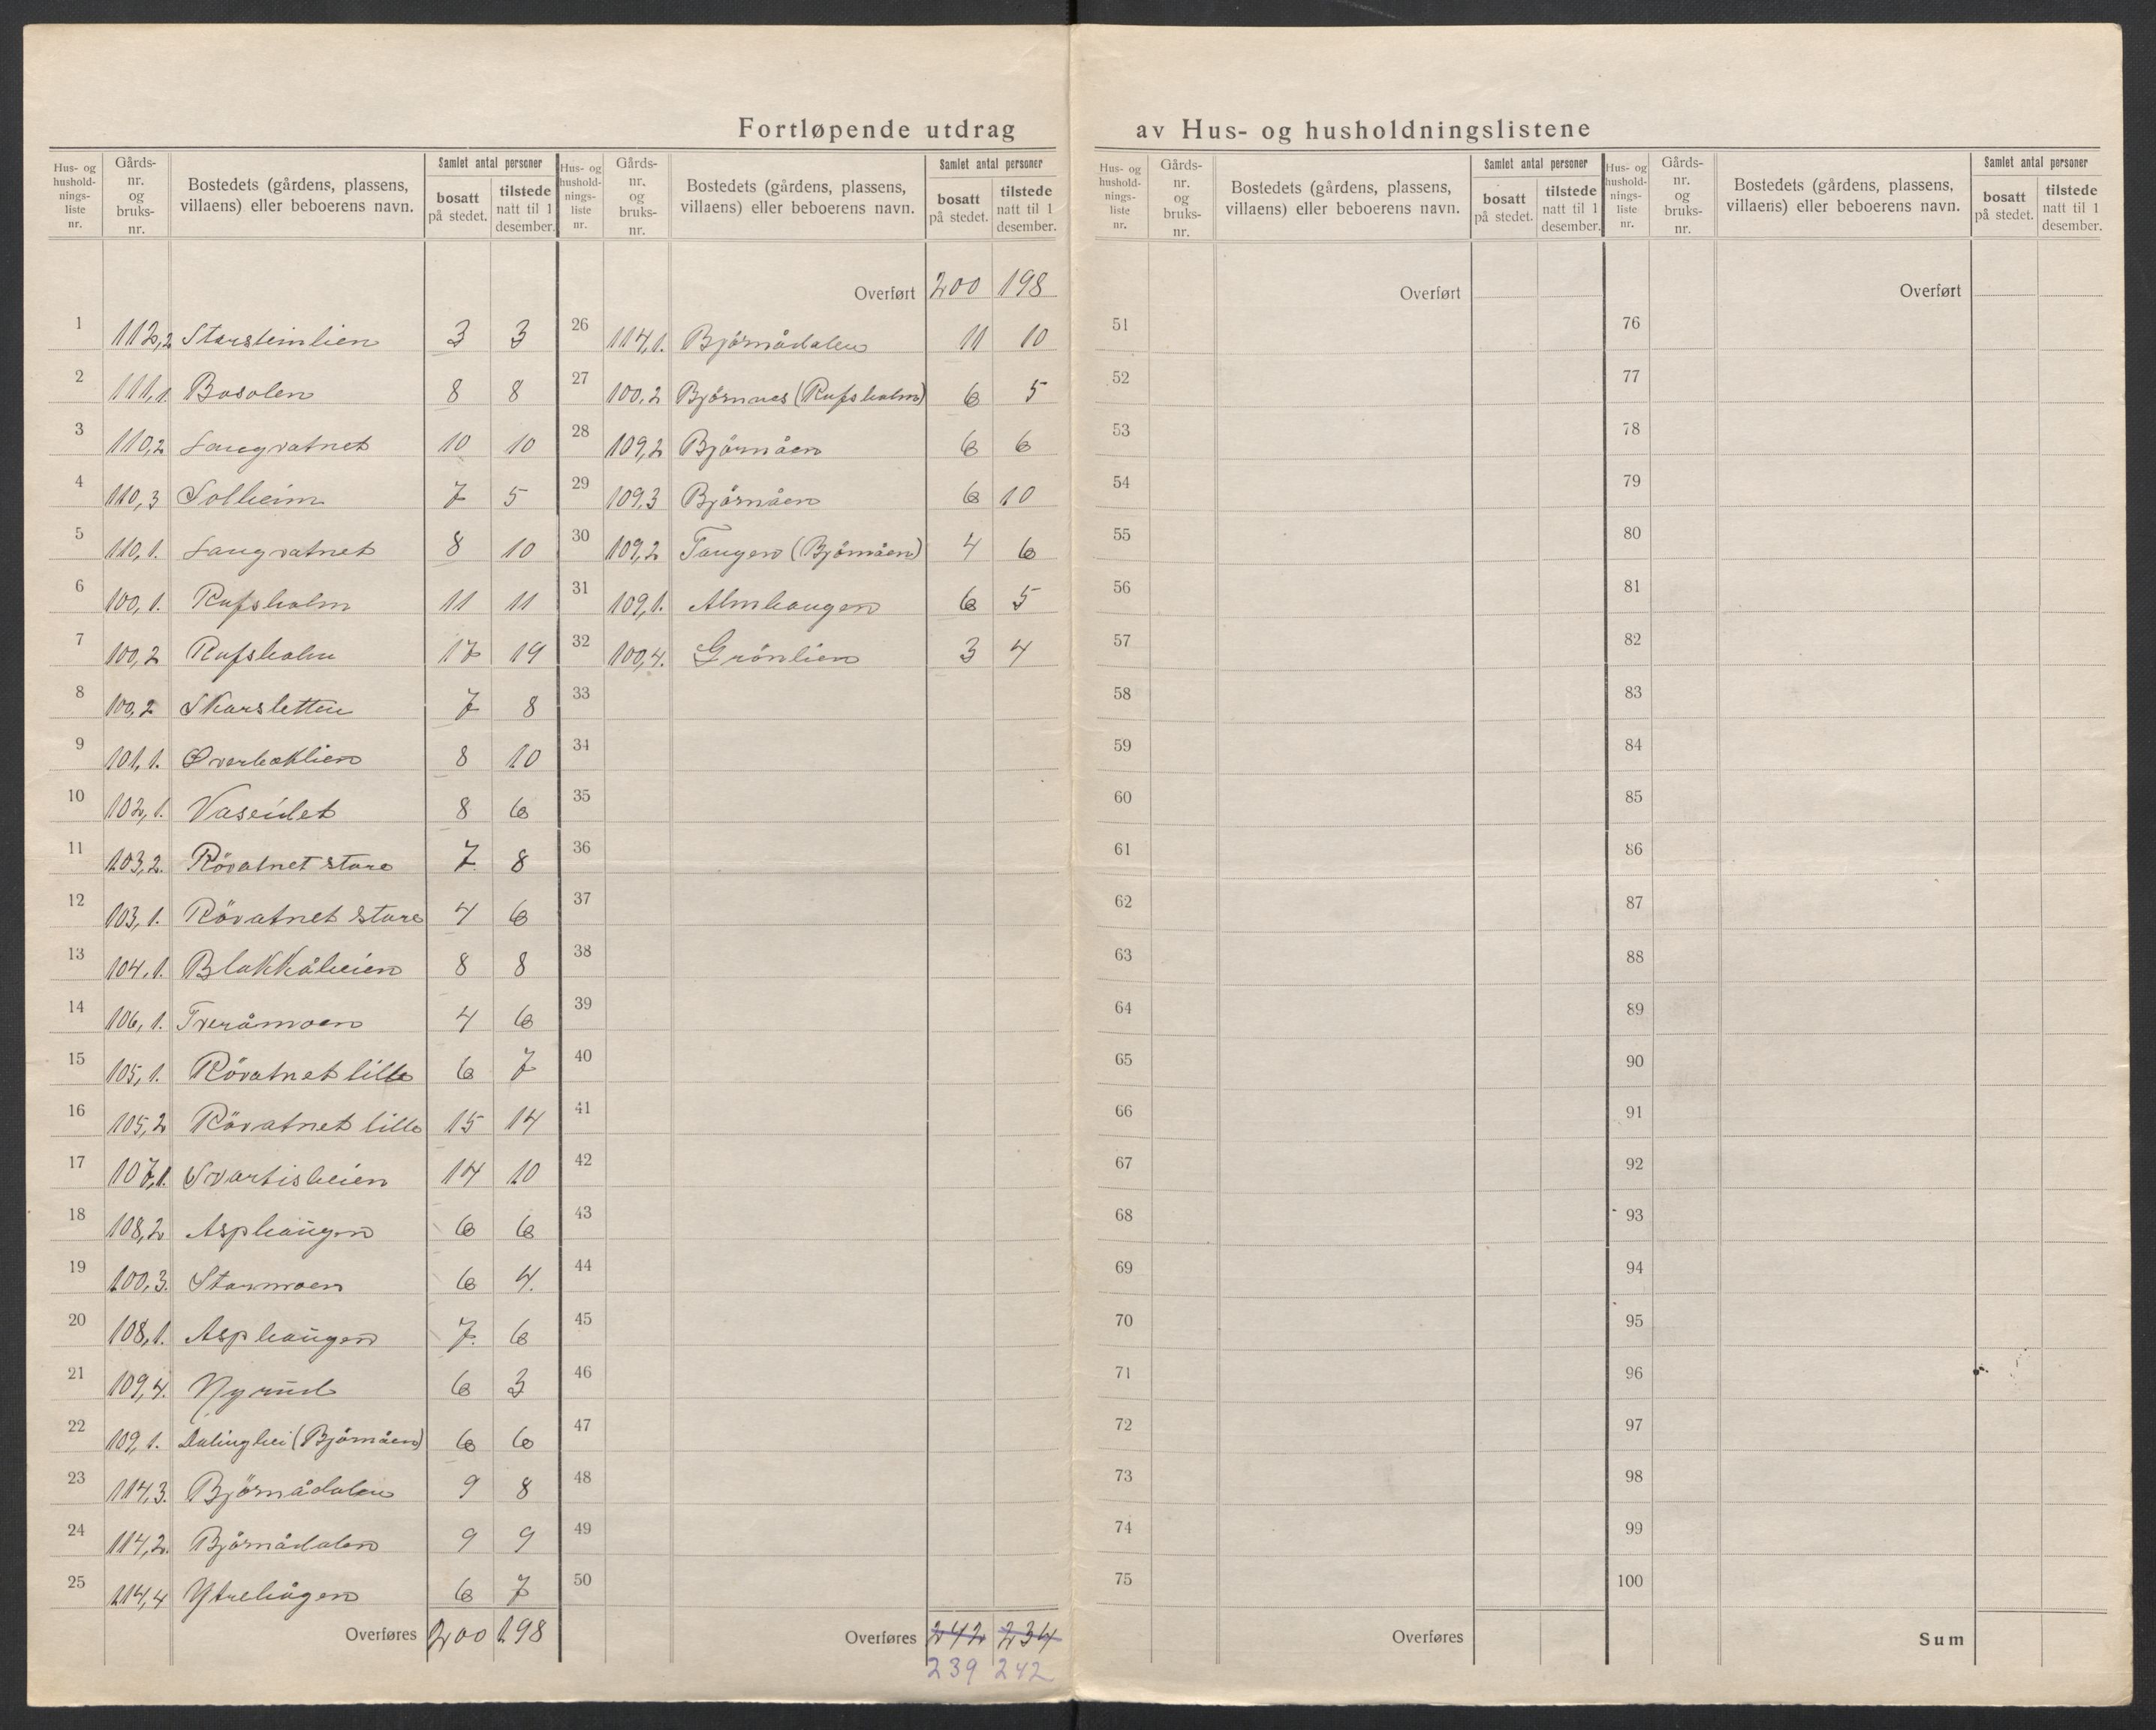 Fortløpende utdrag av Hus- og husholdningslistene
Hus- og husholdnings-liste nr. Gårds-nr. og bruks-nr. Bostedets (gårdens, plassens, villaens) eller beboerens navn. Samlet antal personer bosatt på stedet. tilstede natt til 1 desember.
1 112,2 Storsteinlien 3 3
2 111,1. Bosolen 8 8
3 110,2 Langvatnet 10 10
4 110,3 Solheim 7 5
5 110,1. Langvatnet 8 10
6 100,1. Rufsholm 11 11
7 100,2 Rufsholm 17 19
8 100,2 Skarsletten 7 8
9 101,1. Øverbeklien 8 10
10 102,1. Vaseidet 8 6
11 103,2. Rövatnet store 7 8
12 103,1. Rövatnet store 4 6
13 104,1. Blakkåheien 8 8
14 106,1. Tveråmoen 4 6
15 105,1. Rövatnet lille 6 7
16 105,2 Rövatnet lille 15 14
17 107,1. Svartisheien 14 10
18 108,2 Asphaugen 6 6
19 100,3. Stormoen 6 4.
20 108,1. Asphaugen 7. 6
21 109,4. Nyrud 6 3
22 109,1. (Björnåen) 6 6
23 114,3. Björnådalen 9 8
24 114,2. Björnådalen 9 9
25 114,4 Ytrehågen 6 7
Overføres 200 198
Hus- og husholdnings-liste nr. Gårds-nr. og bruks-nr. Bostedets (gårdens, plassens, villaens) eller beboerens navn. Samlet antal personer bosatt på stedet. tilstede natt til 1 desember.
Overført 200 198
26 114,1. Björnådalen 11 10
27 100,2 Bjørnnes (Rufsholm) 6 5
28 109,2 Björnåen 6 6
29 109,3 Björnåen 6 10
30 109,2 Tangen (Björnåen) 4 6
31 109,1. Almhaugen 6 5
32 100,4. Grönlien 3 4
33
34
35
36
37
38
39
40
41
42
43
44
45
46
47
48
49
50
Overføres 242 234
239 242
Hus- og husholdnings-liste nr. Gårds-nr. og bruks-nr. Bostedets (gårdens, plassens, villaens) eller beboerens navn. Samlet antal personer bosatt på stedet. tilstede natt til 1 desember.
Overført
51
52
53
54
55
56
57
58
59
60
61
62
63
64
65
66
67
68
69
70
71
72
73
74
75
Overføres
Hus- og husholdnings-liste nr. Gårds-nr. og bruks-nr. Bostedets (gårdens, plassens, villaens) eller beboerens navn. Samlet antal personer bosatt på stedet. tilstede natt til 1 desember.
Overført
76
77
78
79
80
81
82
83
84
85
86
87
88
89
90
91
92
93
94
95
96
97
98
99
100
Sum